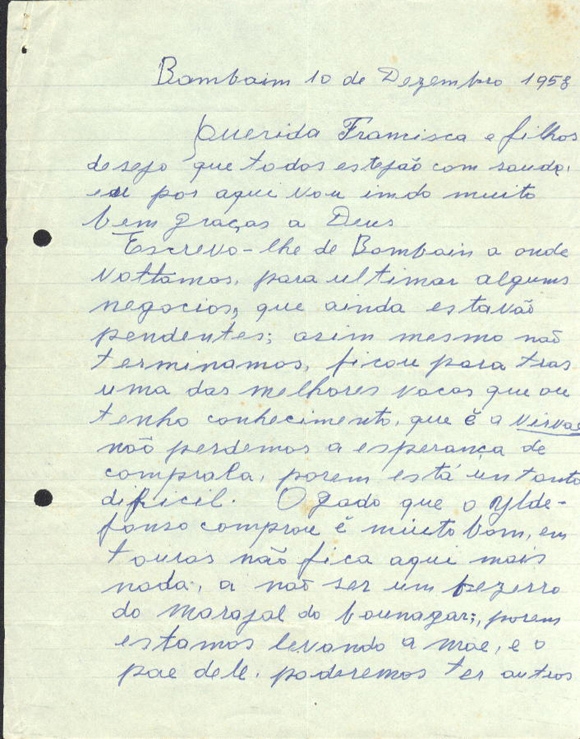 Bombaim 10 de Dezembro 1958
Querida Francisca e filhos
desejo que todos estejão com saude,
eu por aqui vou indo muito
bem graças a Deus
Escrevo-lhe de Bombain a onde
voltamos, para ultimar alguns
negocios, que ainda estavão
pendentes; asim mesmo não
terminamos, ficou para tras
uma das melhores vacas que eu
tenho conhecimento, que é a
não perdemos a esperança de
comprala, porem está un tanto
dificil. O gado que o Ylde-
fonso comprou é muito bom, em
touros não fica aqui mais
nada, a não ser um bezerro
do Marajal do bounagar; porem
estamos levando a mae, e o
pae dele, poderemos ter outros